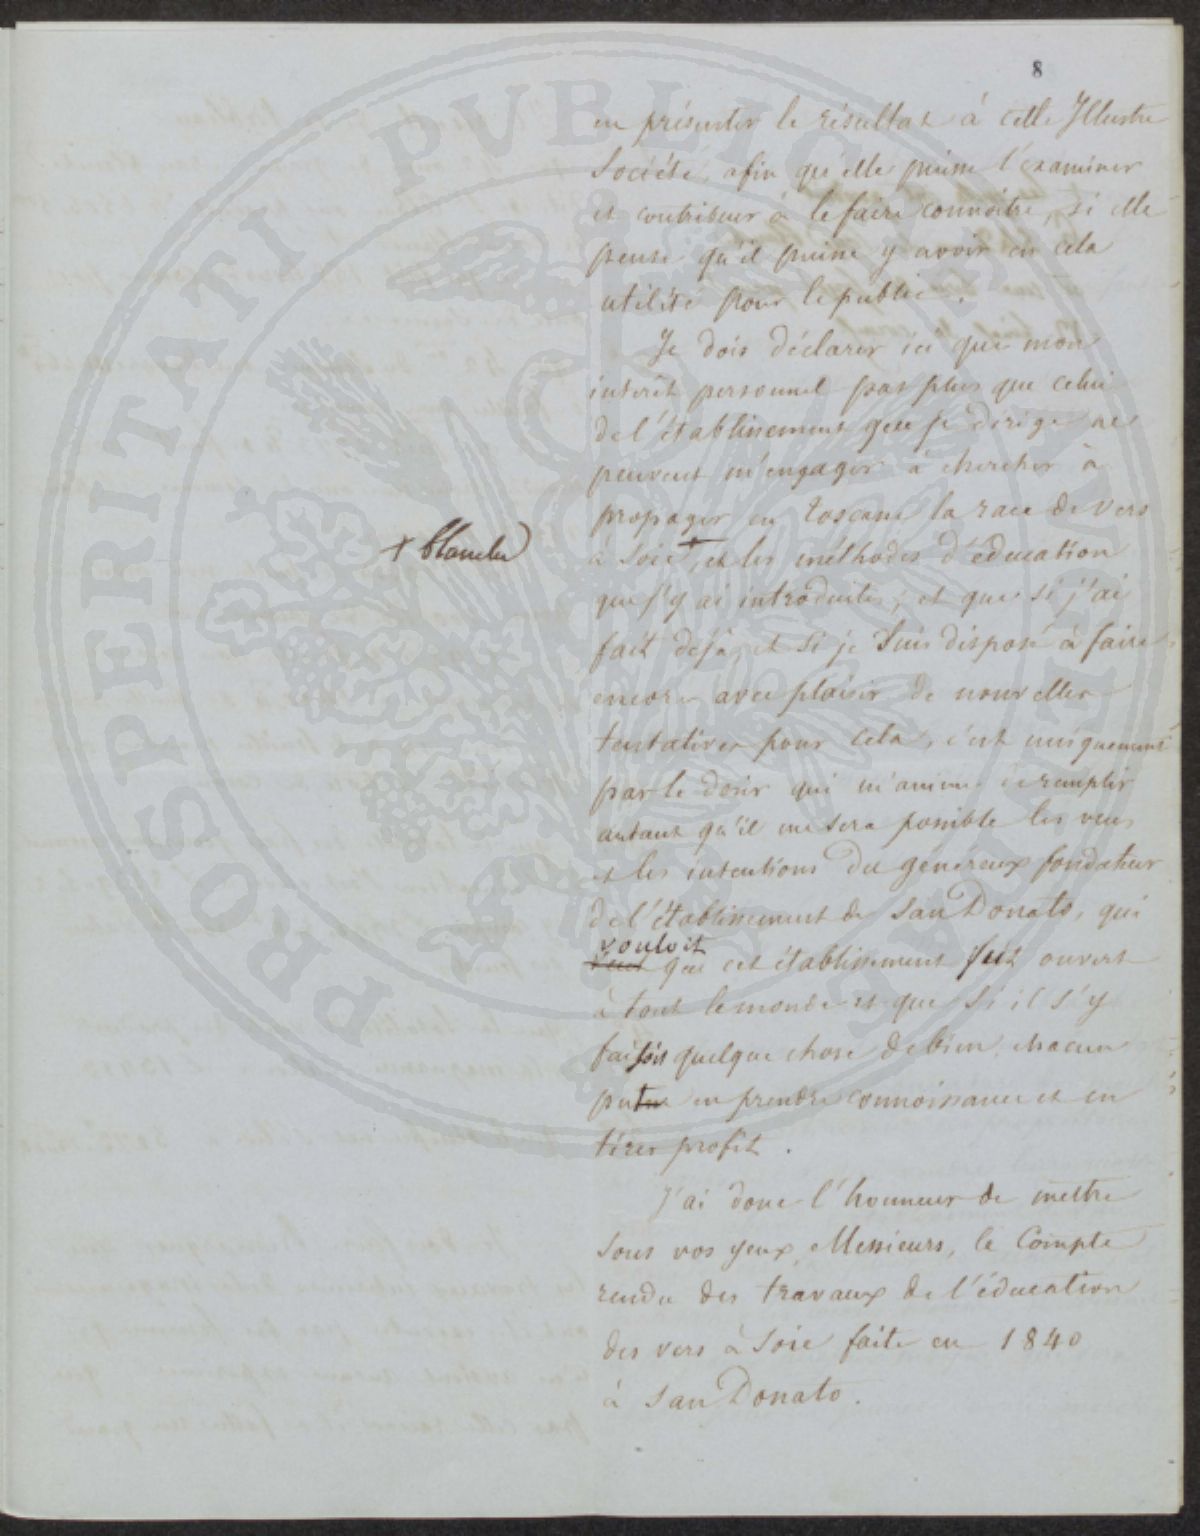 8
en présenter le résultat à cette Illustre
Société, afin qu'elle puisse l'examiner
et contribuer à le faire connoitre, si elle
pense qu'il puisse y avoir en cela
utilité pour le public.
Je dois déclarer ici que mon
interêt personnel pas plus que celui
de l'établissement que je dirige ne
peuvent m'engager à chercher à
propager en Toscane la race de vers
à soie + et les méthodes d'éducation
+ blanche
que j'y ai introduites, et que si j'ai
fait déjà, et si je suis disposé à faire
encore avec plaisir de nouvelles
tentatives pour cela, c'est uniquement
par le désir qui m'anime de remplir
autant qu'il me sera possible les vues
et les intentions du généreux fondateur
de l'établissement de San Donato, qui
vouloit
que cet établissement fut ouvert
à tout le monde et que si il s'y
faisoit quelque chose de bien, chacun
put en prendre connoissance et en
tirer profit.
J'ai donc l'honneur de mettre
sous vos yeux, Messieurs, le Compte
rendu des travaux de l'éducation
des vers à soie faite en 1840
à San Donato.
PROSPERITATI PUBLICAE AUGENDAE